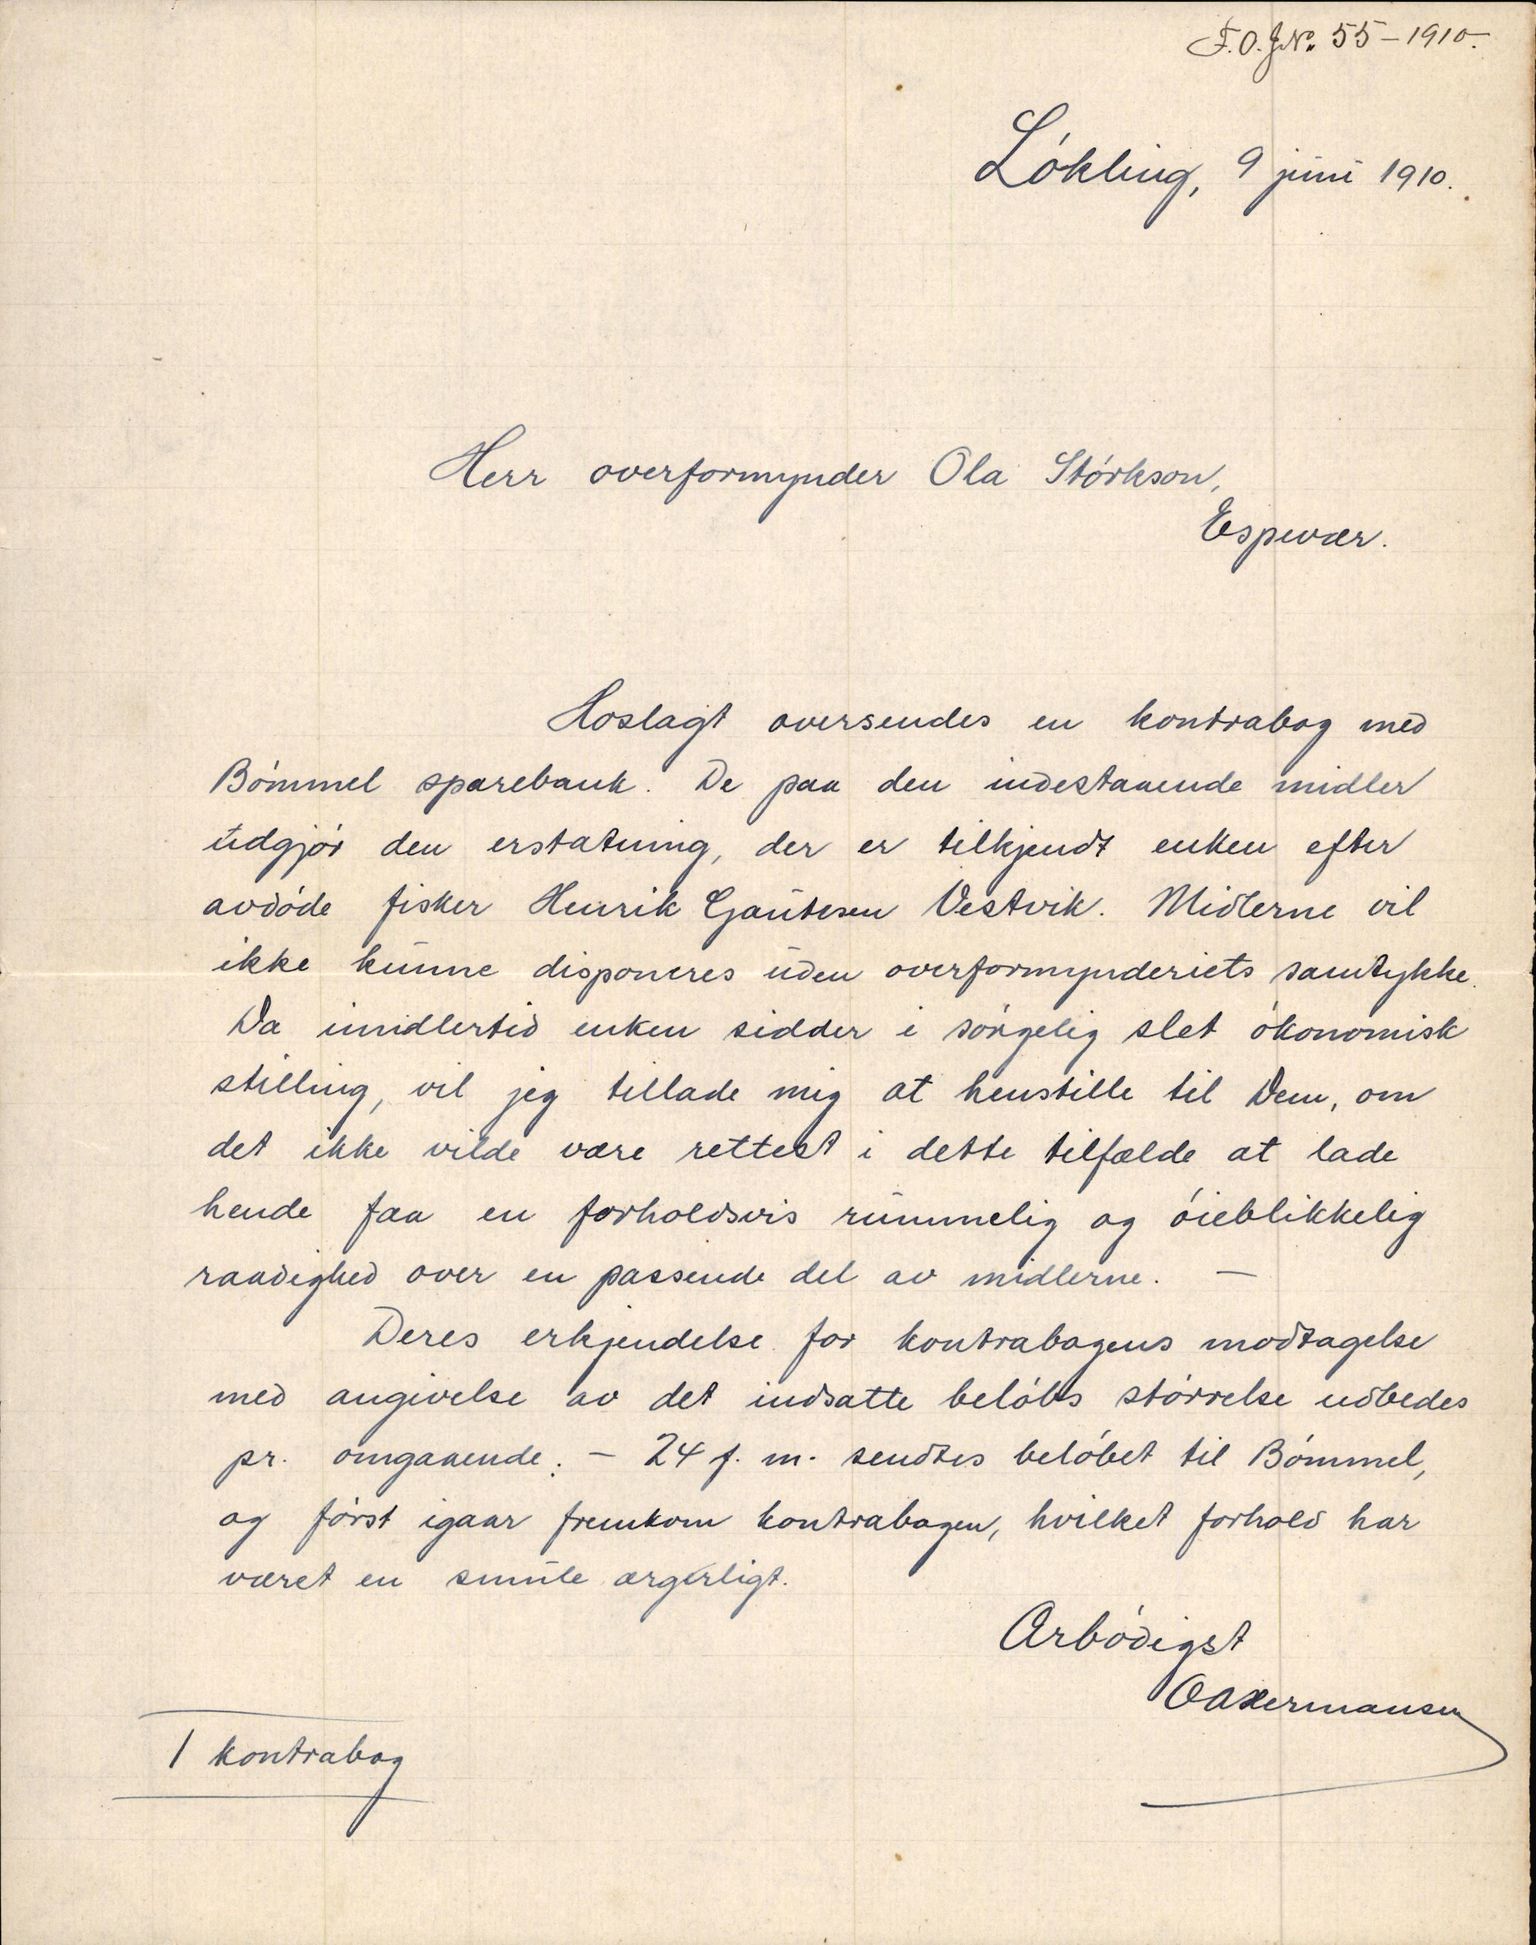 F.O.J.No. 55 – 1910.
Lökling, 9 juni 1910.
Herr overformynder Ola Störkson,
Espevær.
Hoslagt oversendes en kontrabog med
Bömmel sparebank. De paa den indestaaende midler
udgjör den erstatning, der er tilkjendt enken efter
avdöde fisker Henrik Gautesen Vestvik. Midlerne vil
ikke kunne disponeres uden overformynderiets samtykke.
Da imidlertid enken sidder i sörgelig slet ökonomisk
stilling, vil jeg tillade mig at henstille til Dem, om
det ikke vilde være rettest i dette tilfælde at lade
hende faa en forholdsvis rummelig og öieblikkelig
raadighed over en passende del av midlerne. —
Deres erkjendelse for kontrabogens modtagelse
med angivelse av det indsatte belöbs störrelse udbedes
pr. omgaaende. – 24 f. m. sendtes belöbet til Bömmel,
og först igaar fremkom kontrabogen, hvilket forhold har
været en smule ærgerligt.
Ærbödigst
1 kontrabog